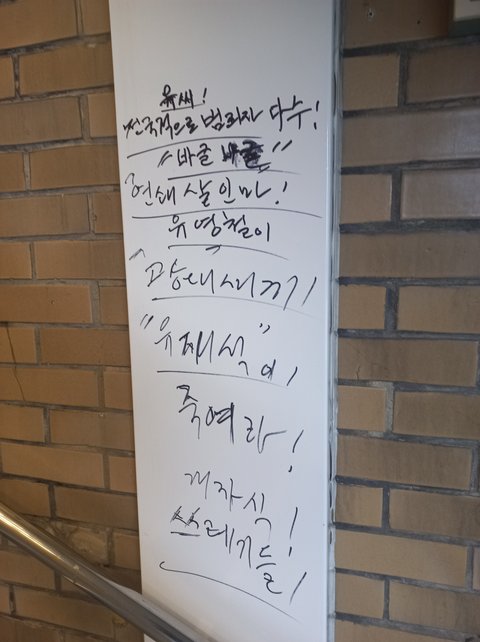 유씨!
전국적으로 범죄자 다수!
"바글 바글"
연쇄살인마!
유영철이
"광대새끼!
"유재석"이!
죽여라!
개자식!
쓰레기들!